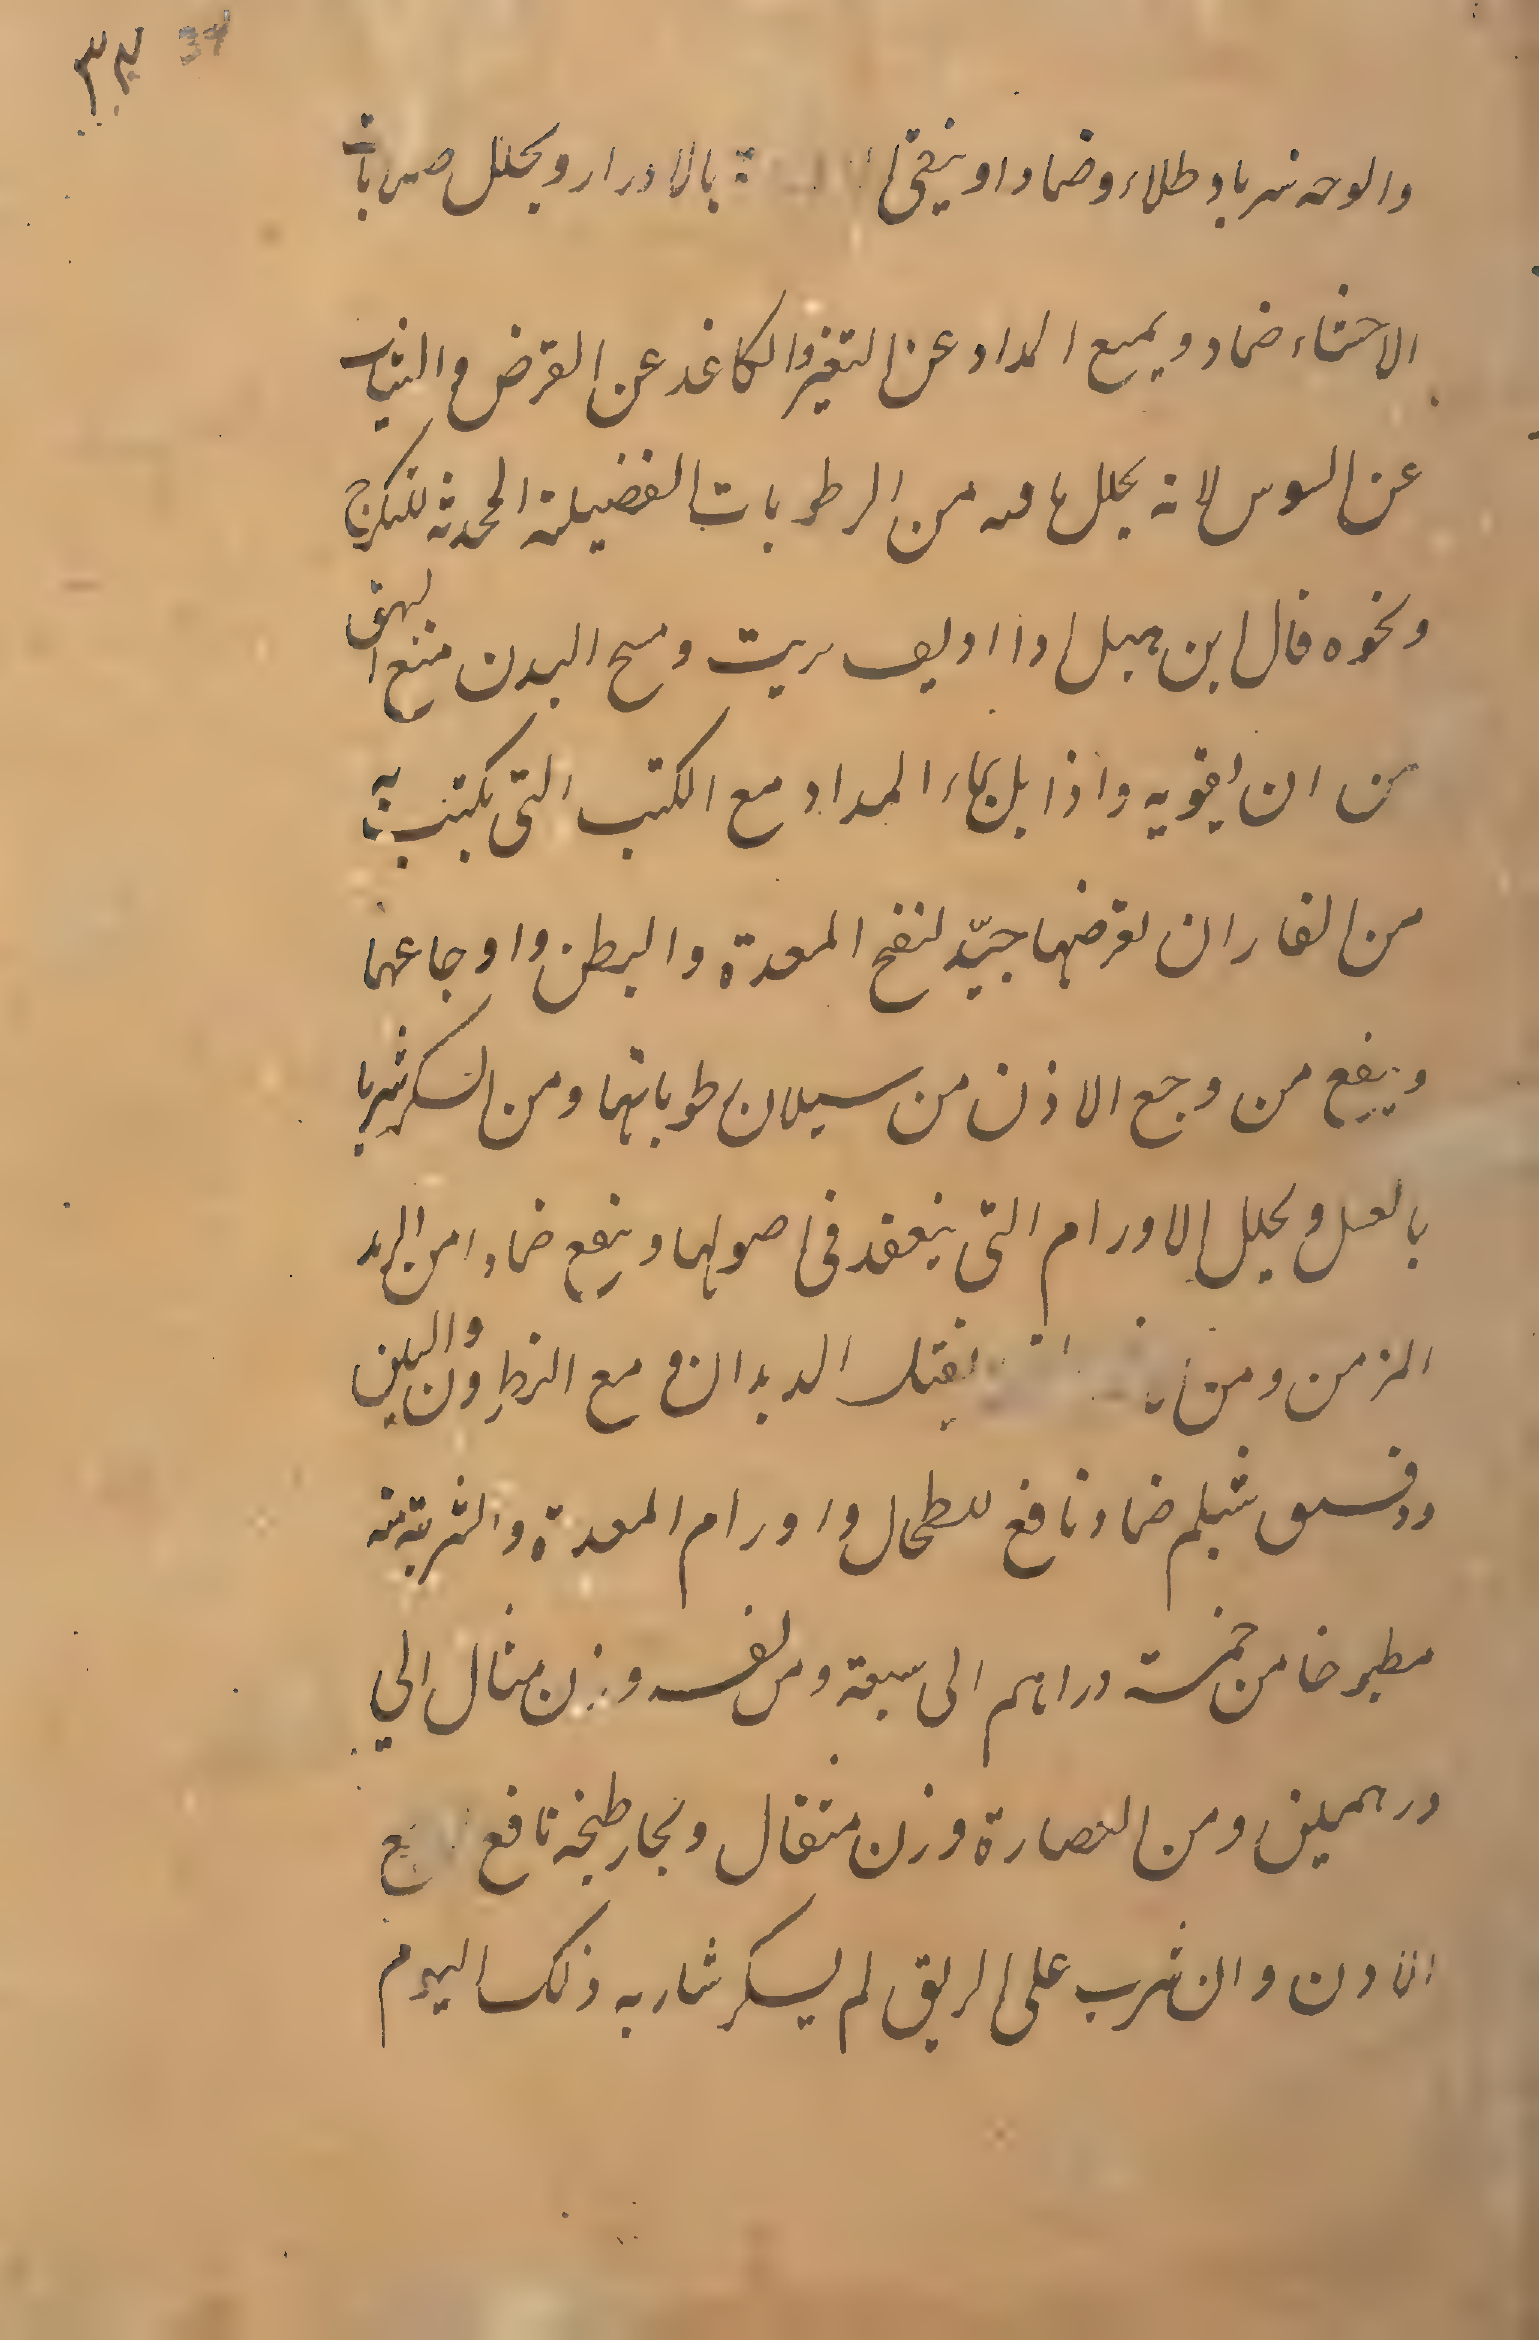 ٣٤ 34
والوجه شربا و طلاء وضمادا وينقى بالادرار ويحلل صلابات
الاحشاء ضماد ويمنع المداد عن التغير والكاغد عن القرض والثياب
عن السوس لانه يحلل ما فيه من الرطوبات الفضيلة المحدثة للتكرج
ونحوه قال ابن هبل اذا اديف بزيت ومسح البدن منع البق
من ان يقربه واذا بل بماء المداد مع الكتب التى يكتب به
من الفار ان يقرضها جيد لنفخ المعدة والبطن واوجاعهما
وينفع من وجع الاذن من سيلان رطوباتها ومن السكر شربا
بالعسل ويحلل الاورام التى ينعقد فى اصولها وينفع ضمادا من الرمد
المزمن ومن يقتل الديدان ومع النطرون والتين
ودقيق شيلم ضماد نافع للطحال واورام المعدة والشربة منه
مطبوخا من خمسة دراهم الى سبعة ومن نفسه وزن مثقال الي
درهمين ومن العصارة وزن مثقال وبخار طبخه نافع
الاذن وان شرب على الريق لم يسكر شاربه ذلك اليوم